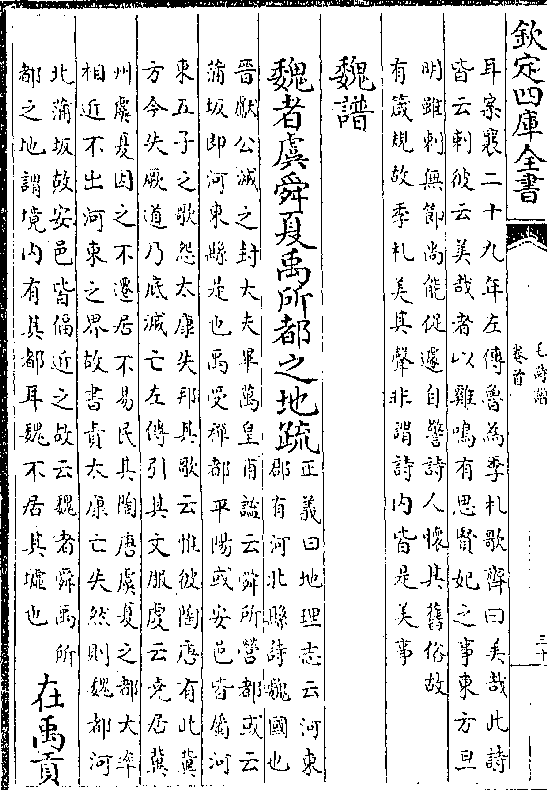 欽定四庫全書
毛詩譜
卷首
三十
耳案襄二十九年左傳魯為季札歌齊曰美哉此詩
皆云刺彼云美哉者以雞鳴有思賢妃之事東方旦
明雖刺無節尚能促遽自警詩人懷其舊俗故
有箴規故季札美其聲非謂詩内皆是美事
魏譜
魏者虞舜夏禹所都之地疏
正義曰地理志云河東
郡有河北縣詩魏國也
晉獻公滅之封大夫畢萬皇甫謐云舜所營都或云
蒲坂即河東縣是也禹受禪都平陽或安邑皆屬河
東五子之歌怨太康失邦其歌云惟彼陶唐有此冀
方今失厥道乃底滅亡左傳引其文服虔云堯居冀
州虞夏因之不遷居不易民其陶唐虞夏之都大率
相近不出河東之界故書責太康亡失然則魏都河
北蒲坂故安邑皆偪近之故云魏者舜禹所
都之地謂境内有其都耳魏不居其墟也
在禹貢